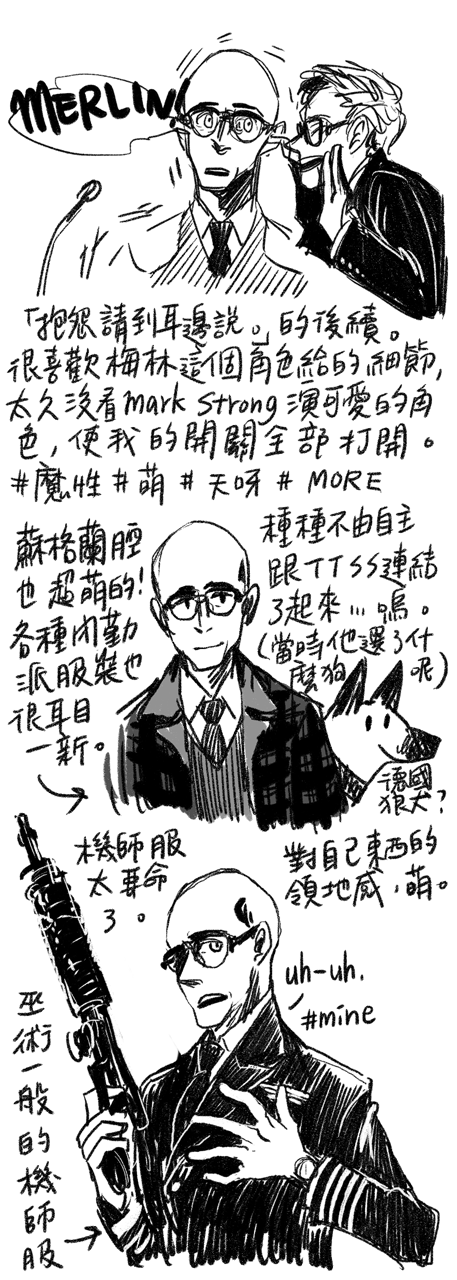 MERLIN!
「抱怨請到耳邊說。」的後續。
很喜歡梅林這個角色給的細節,
太久沒看mark strong演可愛的角
色,使我的開關全部打開。
#魔性#萌#天呀#MORE
蘇格蘭腔
也超萌的!
各種內勤
派服裝也
很耳目
一新。
種種不由自主
跟TTSS連結
了起來...嗚。
(當時他選了什
麼狗呢)
德國
狼犬?
機師服
太要命
了。
對自己東西的
領地感,萌。
uh-uh.
#mine
巫術一般的機師服